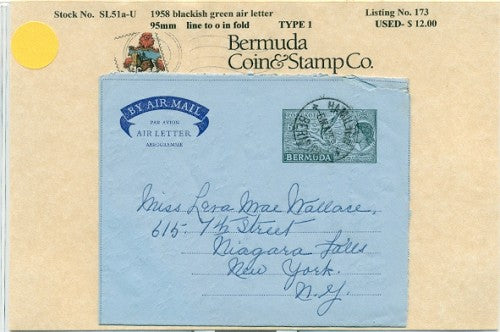 Stock No. SL51a-U 1958 blackish green air letter Listing No. 173
95mm line to o in fold TYPE 1 USED- $ 12.00
Bermuda
Coin&Stamp Co.
BY AIR MAIL
PAR AVION
AIR LETTER
AEROGRAMME
BERMUDA
Miss Lera Mae Wallace,
615- 7th Street
Niagara Falls
New York.
N.Y.